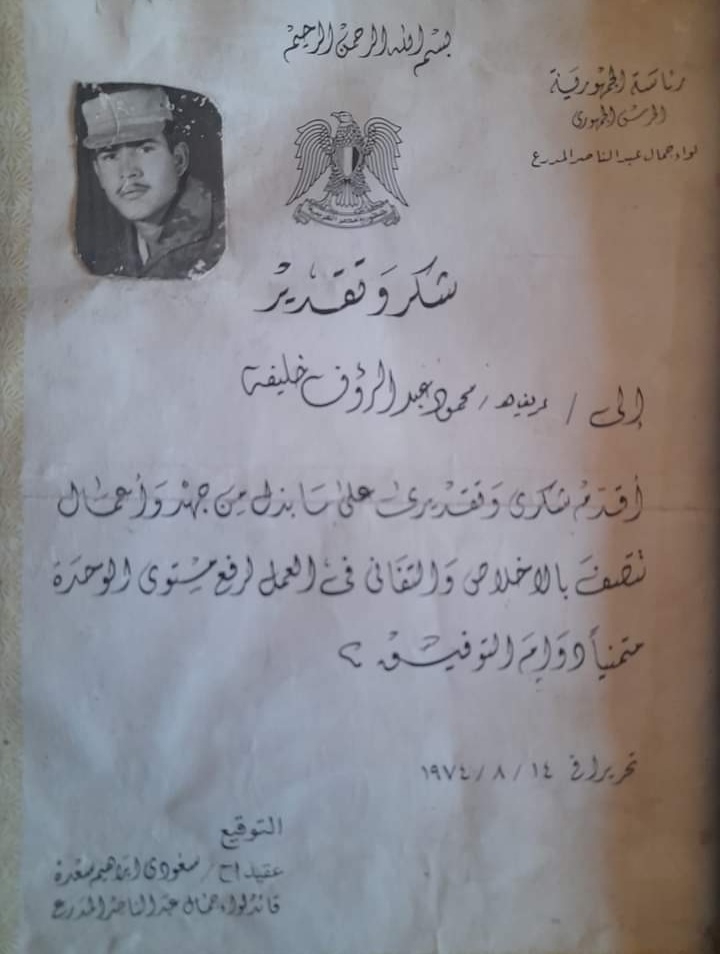 بسم الله الرحمن الرحيم
رئاسة الجمهورية
الحرس الجمهورى
لواء جمال عبد الناصر المدرع
شكر وتقدير
إلى / عريف هـ / محمود عبد الرؤف خليفه
أقدم شكرى وتقديرى على ما بذل من جهد وأعمال
تتصف بالاخلاص والتفانى فى العمل لرفع مستوى الوحدة
متمنياً دوام التوفيق
تحريرا فى ١٤ / ٨ / ١٩٧٤
التوقيع
عقيد أ ح / سعودى ابراهيم سعدة
قائد لواء جمال عبد الناصر المدرع